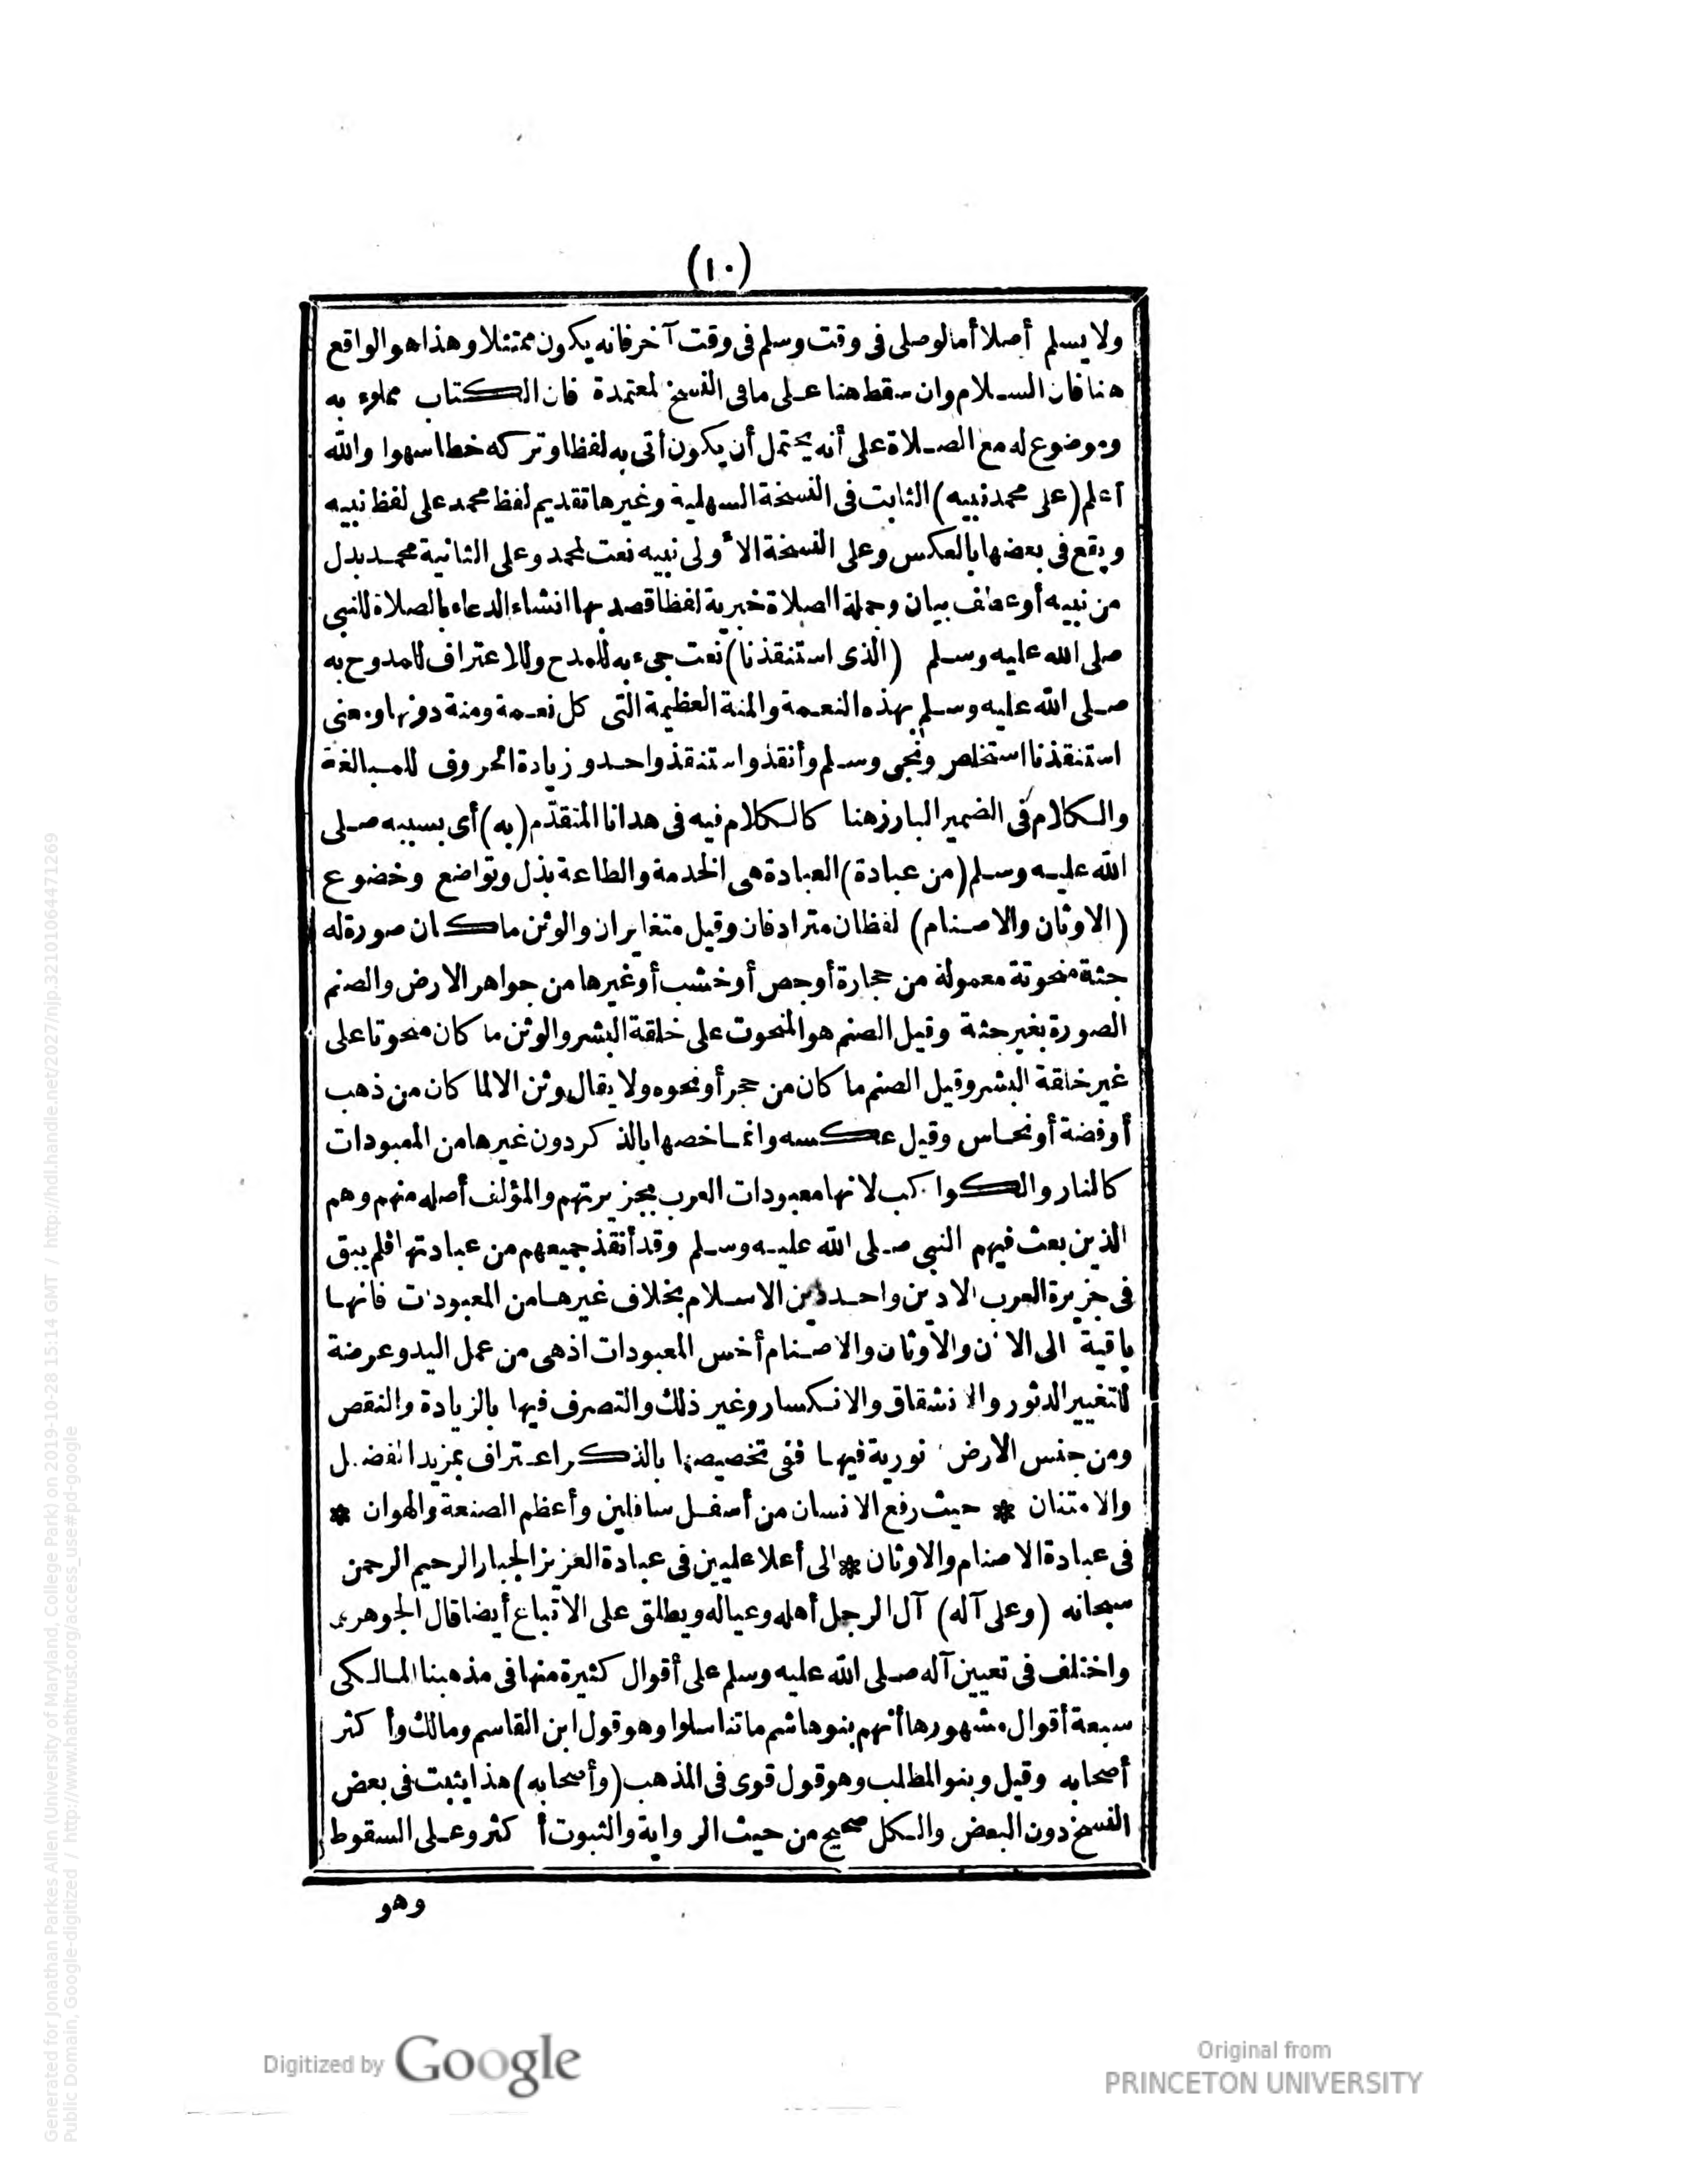 (١٠)
ولا يسلم أصلا أما لو صلى فى وقت وسلم فى وقت آخر فانه يكون ممتثلا وهذا هو الواقع
هنا فان السلام وان سقط هنا على ما فى النسخ لمعتمدة فان الكتاب مملوء به
وموضوع له مع الصلاة على أنه يحتمل أن يكون أتى به لفظا وتركه خطا سهوا والله
أعلم (على محمد نبيه) الثابت فى النسخة السهلية وغيرها تقديم لفظ محمد على لفظ نبيه
ويقع فى بعضها بالعكس وعلى النسخة الأولى نبيه نعت لمحمد وعلى الثانية محمد بدل
من نبيه أو عطف بيان وجملة الصلاة خبرية لفظا قصد بها انشاء الدعاء بالصلاة للنبي
صلى الله عليه وسلم (الذى استنقذنا) نعت جىء به للمدح وللاعتراف للمدوح به
صلى الله عليه وسلم بهذه النعمة والمنة العظيمة التى كل نعمة ومنة دونها ومعنى
استنقذنا استخلص ونجى وسلم وأنقذ واستنقذ واحد و زيادة الحروف للمبالغة
والكلام فى الضمير البارز هنا كالكلام فيه فى هدانا المتقدّم (به) أى بسببه صلى
الله عليه وسلم (من عبادة) العبادة هى الخدمة والطاعة بذل وتواضع وخضوع
(الاوثان والاصنام) لفظان مترادفان وقيل متغايران والوثن ما كان صورة له
جثة منحوتة معمولة من حجارة أو جص أو خشب أو غيرها من جواهر الارض والصنم
الصورة بغير جثة وقيل الصنم هو المنحوت على خلقة البشر والوثن ما كان منحوتا على
غير خلقة البشر وقيل الصنم ما كان من حجر أو نحوه ولا يقال وثن الا لما كان من ذهب
أو فضة أو نحاس وقيل عكسه وانما خصها بالذكر دون غيرها من المعبودات
كالنار والكواكب لانها معبودات العرب بجزيرتهم والمؤلف أصله منهم وهم
الذين بعث فيهم النبي صلى الله عليه وسلم وقد أنقذ جميعهم من عبادتها فلم يبق
فى جزيرة العرب الا دين واحد دين الاسلام بخلاف غيرها من المعبودات فانها
باقية الى الآن والأوثان والاصنام أخس المعبودات اذ هى من عمل اليد وعرضة
للتغيير الدثور والانشقاق والانكسار وغير ذلك والتصرف فيها بالزيادة والنقص
ومن جنس الارض نورية فيها ففى تخصيصها بالذكر اعتراف بمزيد الفضل
والامتنان * حيث رفع الانسان من أسفل سافلين وأعظم الصنعة والهوان *
فى عبادة الاصنام والاوثان * الى أعلا عليين فى عبادة العزيز الجبار الرحيم الرحمن
سبحانه (وعلى آله) آل الرجل أهله وعياله ويطلق على الاتباع أيضا قال الجوهرى
واختلف فى تعيين آله صلى الله عليه وسلم على أقوال كثيرة منها فى مذهبنا المالكى
سبعة أقوال مشهورها أنهم بنو هاشم ما تناسلوا وهو قول ابن القاسم ومالك وأكثر
أصحابه وقيل وبنو المطلب وهو قول قوى فى المذهب (وأصحابه) هذا يثبت فى بعض
النسخ دون البعض والكل صحيح من حيث الرواية والثبوت أكثر وعلى السقوط
وهو
Digitized by Google
Original from
PRINCETON UNIVERSITY
Generated for Jonathan Parkes Allen (University of Maryland, College Park) on 2019-10-28 15:14 GMT / http://hdl.handle.net/2027/njp.32101064471269
Public Domain, Google-digitized / http://www.hathitrust.org/access_use#pd-google